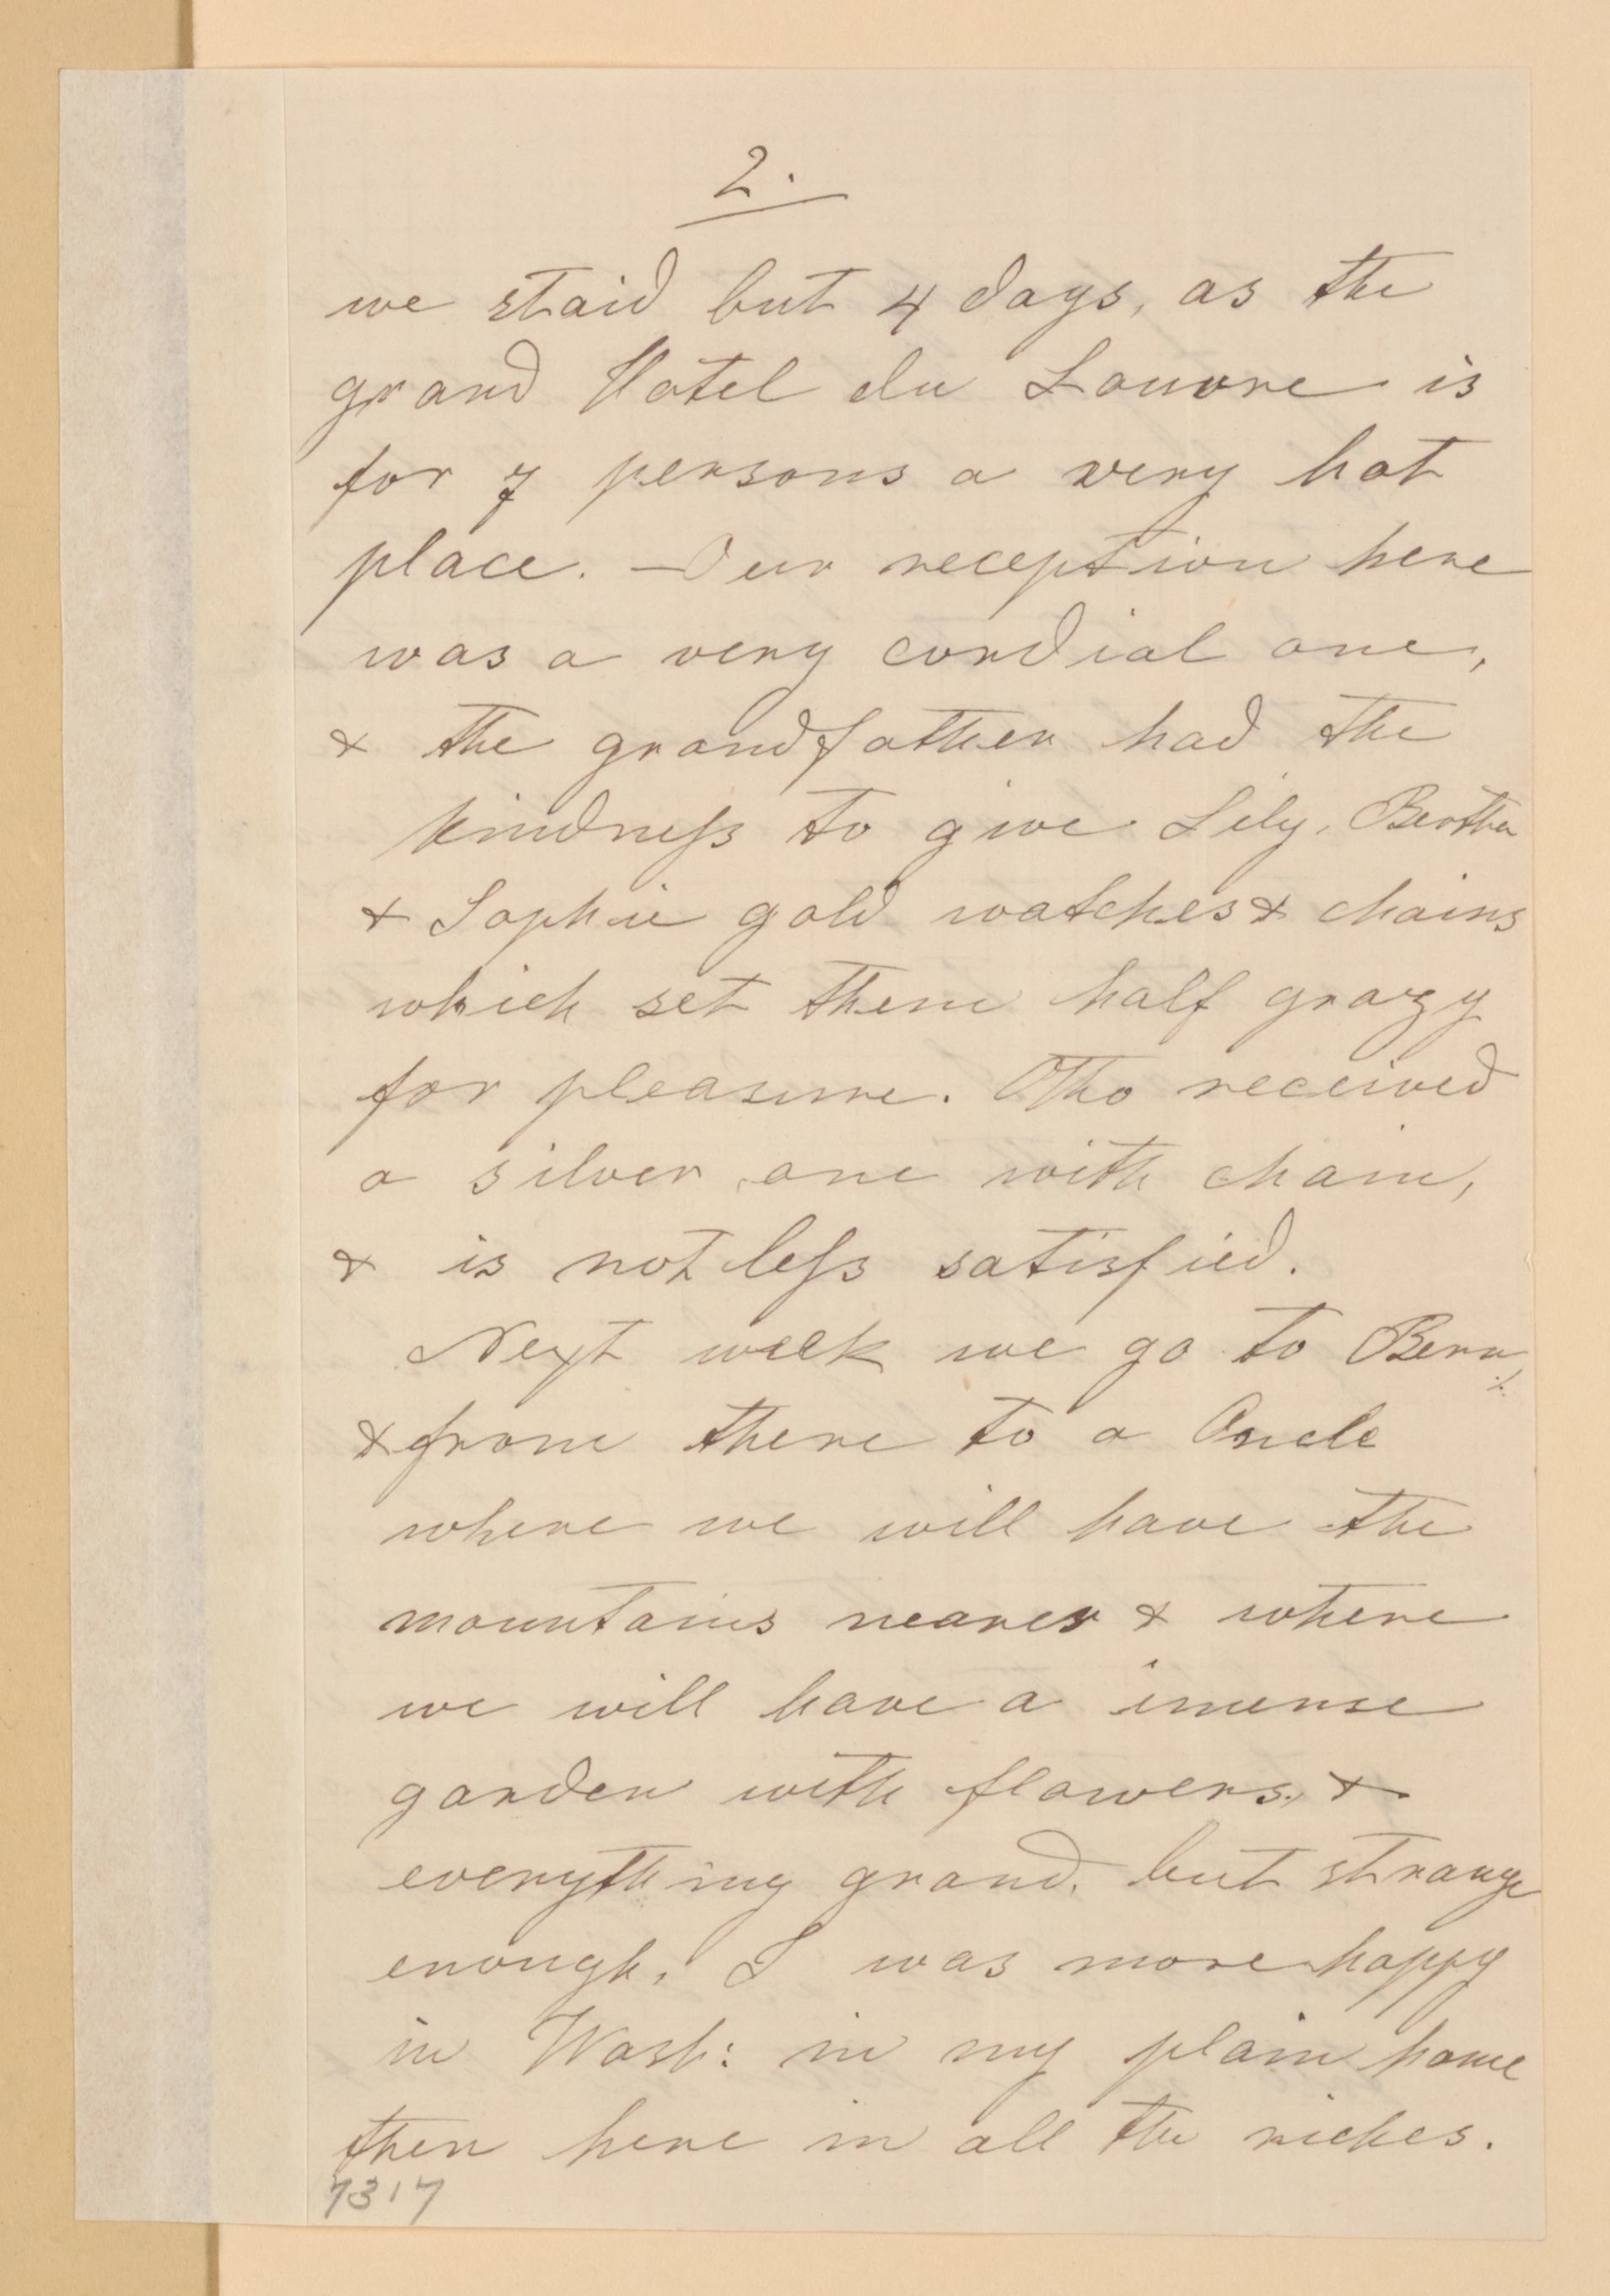 2.
we staid but 4 days, as the
grand Hotel du Louvre is
for 7 persons a very hot
place. — Our reception here
was a very cordial one,
& the grandfather had the
kindness to give Lily, Bertha
& Sophie gold watches & chains
which set them half grazy
for pleasure. Otho received
a silver one with chain,
& is not less satisfied.
Next week we go to Bern,
& from there to a Oncle
where we will have the
mountains nearer & where
we will have a imense
garden with flowers, &
everything grand, but strange
enough, I was more happy
in Wash: in my plain home
then here in all the riches.
7317